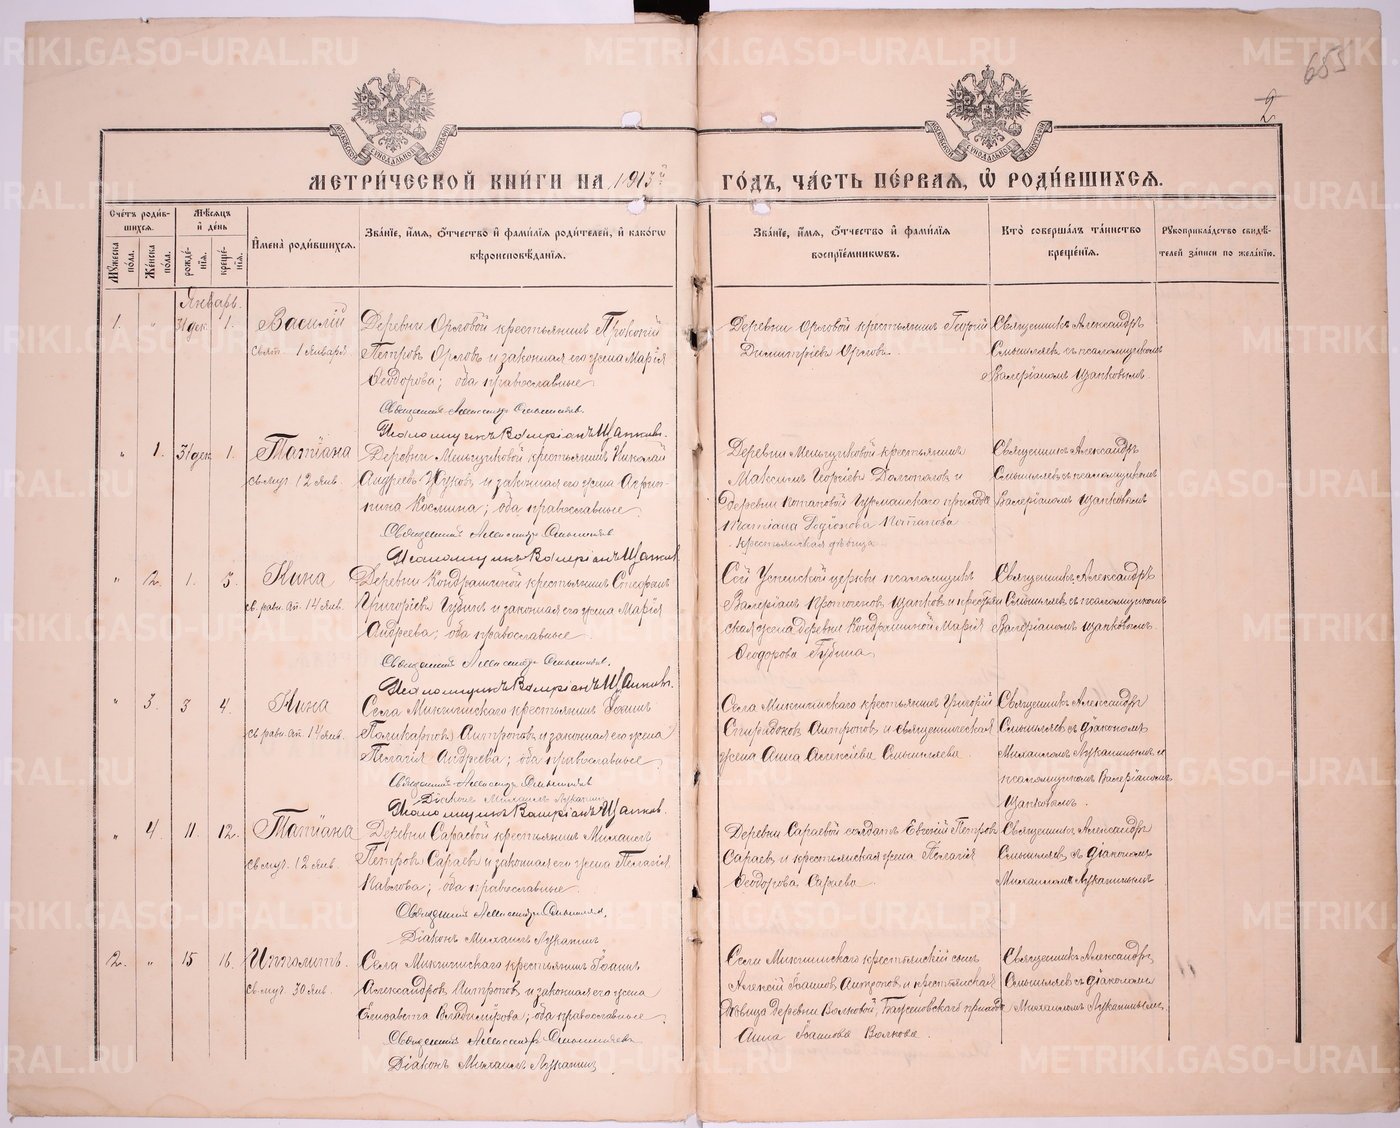 METRIKI.GASO-URAL.RU
655
2
МЕТРИ́ЧЕСКОЙ КНИ́ГИ НА 1913й ГО́ДЪ, ЧА́СТЬ ПЕ́РВАЯ, Ѡ РОДИ́ВШИХСЯ.
Сче́тъ роди́вшихся.
Му́жеска по́ла.
Же́нска по́ла.
Мѣ́сяцъ и҆ де́нь
рожде́нія.
креще́нія.
И҆мена̀ роди́вшихся.
Зва́ніе, и҆́мя, ѻ҆́тчество и҆ фами́лія роди́телей, и҆ како́гѡ вѣроисповѣ́данія.
Зва́ніе, и҆́мя, ѻ҆́тчество и҆ фами́лія воспріе́мникѡвъ.
Кто̀ соверша́лъ та́инство креще́нія.
Рꙋкоприкла́дство свидѣ́телей за́писи по жела́нію.
Январь.
1. " 31 дек. 1. Василій
свят. 1 Января
Деревни Орловой крестьянинъ Прокопій
Петровъ Орловъ и законная его жена Марія
Ѳеодорова; оба православные
Священникъ Александръ Смышляевъ.
Псаломщикъ Валеріанъ Щапковъ.
Деревни Орловой крестьянинъ Георгій
Димитріевъ Орловъ.
Священникъ Александръ
Смышляевъ съ псаломщикомъ
Валеріаномъ Щапковымъ.
" 1. 31 дек. 1. Татіана
св. муч. 12 Янв.
Деревни Меньщиковой крестьянинъ Николай
Андреевъ Жуковъ и законная его жена Агрип-
пина Космина; оба православные
Священникъ Александръ Смышляевъ
Псаломщикъ Валеріанъ Щапков.
Деревни Меньщиковой крестьянинъ
Максимъ Георгіевъ и
деревни Потаповой прихода
Татіана Родіонова Потапова
крестьянская дѣвица
Священникъ Александръ
Смышляевъ съ псаломщикомъ
Валеріаномъ Щапковымъ
" 2. 1. 3. Нина
св. равн. ап. 14 Янв.
Деревни Кондрашиной крестьянинъ Стефанъ
Григоріевъ Губинъ и законная его жена Марія
Андреева; оба православные
Священникъ Александръ Смышляевъ.
Псаломщикъ Валеріанъ Щапковъ.
Сей Успенской церкви псаломщикъ
Валеріанъ Щапковъ и крестьян-
ская жена деревни Кондрашиной Марія
Ѳеодорова Губина
Священникъ Александръ
Смышляевъ съ псаломщикомъ
Валеріаномъ Щапковымъ.
" 3. 3 4. Нина
св. равн. ап. 14 Янв.
Села крестьянинъ Іоаннъ
Поликарповъ Антроповъ и законная его жена
Пелагія Андреева; оба православные
Священникъ Александръ Смышляевъ
Діаконъ Михаилъ Лукашинъ
Псаломщикъ Валеріанъ Щапков.
Села крестьянинъ Григорій
Спиридоновъ Антроповъ и священническая
жена Анна Алексіева Смышляева.
Священникъ Александръ
Смышляевъ съ діакономъ
Михаиломъ Лукашинымъ и
псаломщикомъ Валеріаномъ
Щапковымъ.
" 4. 11. 12. Татіана
св. муч. 12 Янв.
Деревни Сараевой крестьянинъ Михаилъ
Петровъ Сараевъ и законная его жена Пелагія
Павлова; оба православные
Священникъ Александръ Смышляевъ.
Діаконъ Михаилъ Лукашинъ
Деревни Сараевой солдатъ Евгеній Петровъ
Сараевъ и крестьянская жена Пелагія
Ѳеодорова Сараева.
Священникъ Александръ
Смышляевъ съ діакономъ
Михаиломъ Лукашинымъ
2. " 15 16. Ипполитъ.
св. муч. 30 Янв.
Села крестьянинъ Іоаннъ
Александровъ Антроповъ и законная его жена
Елисавета Владимірова; оба православные
Священникъ Александръ Смышляевъ
Діаконъ Михаилъ Лукашинъ
Села крестьянскій сынъ
Алексій Іоанновъ Антроповъ и крестьянская
дѣвица деревни Волковой, прихода
Анна Іоаннова Волкова.
Священникъ Александръ
Смышляевъ съ діакономъ
Михаиломъ Лукашинымъ